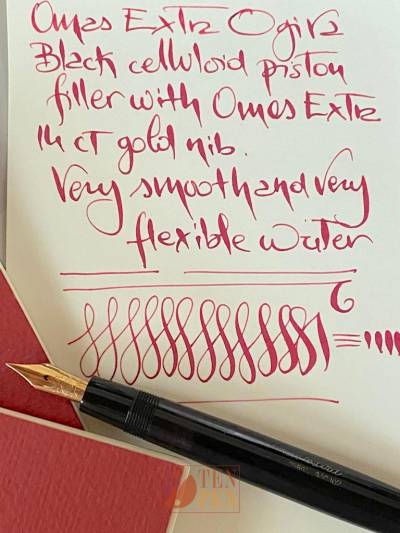 Omas Extra Ogiva
Black celluloid piston
filler with Omas Extra
14 CT gold nib.
Very smooth and very
flexible writer
TEN
PEN